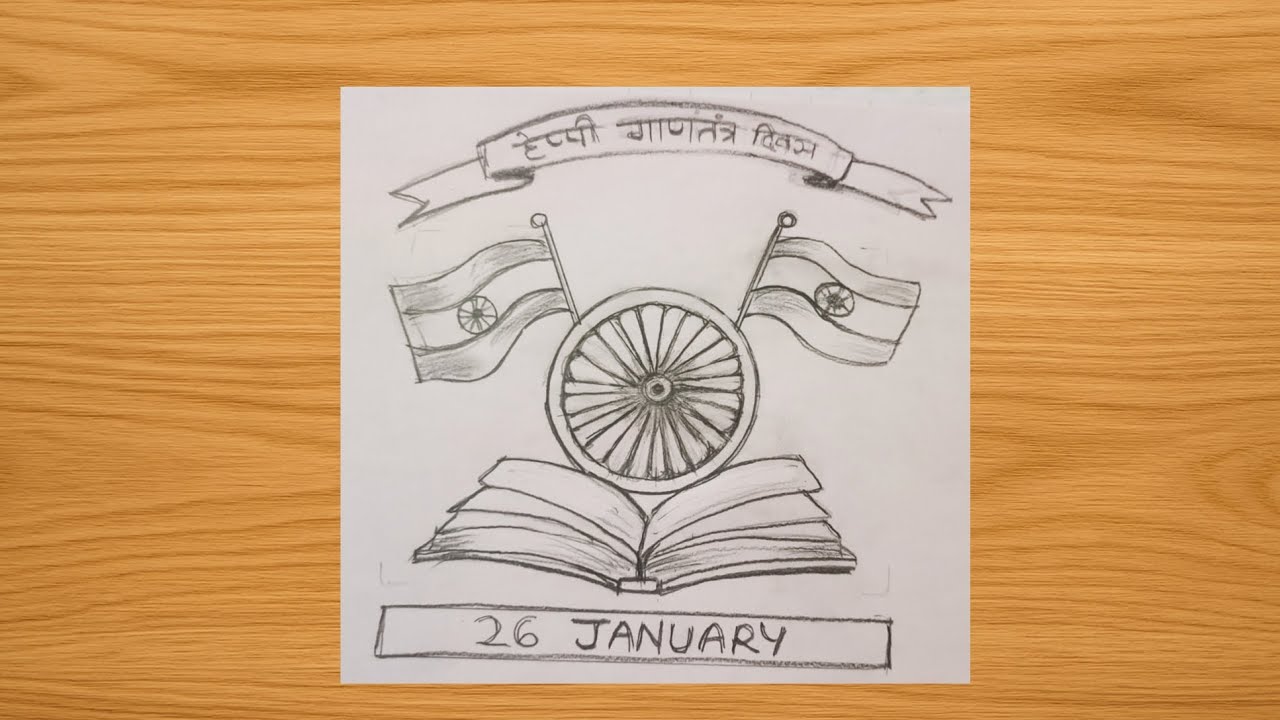 हेप्पी गाणतंत्र दिवस
26 JANUARY